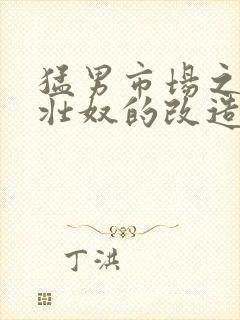 猛男市场之
壮奴的改造
丁洪